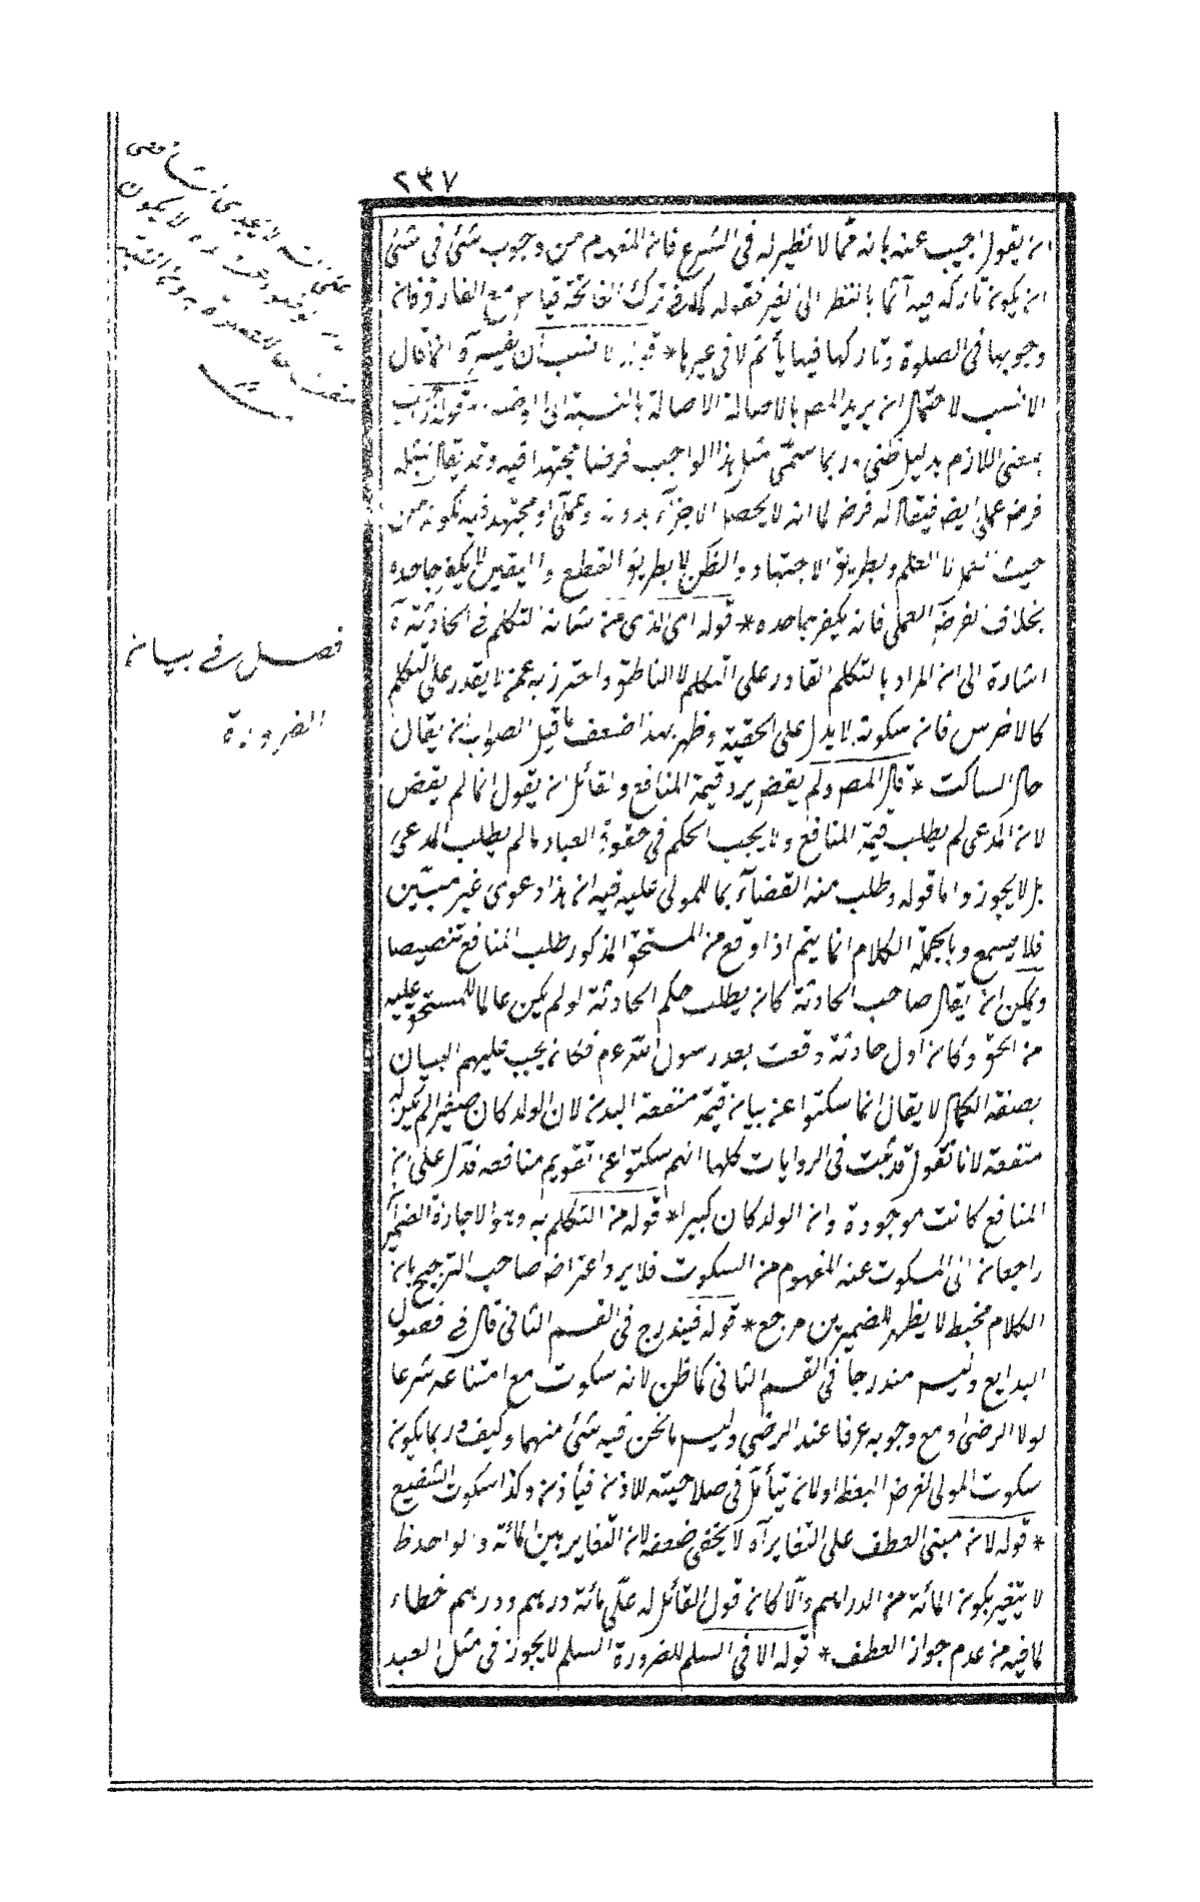 ٢٣٧
ان يقول اجيب عنه بانه مما لا نظير له في الشرع فان المفهوم من وجوب شئ في شئ
ان يكون تاركه فيه آثما بالنظر الى الغير فقوله كما في ترك الفاتحة قياس مع الفارق فان
وجوبها في الصلوة وتاركها فيها يأثم لا في غيرها * قوله الانسب ان يفسره وانما قال
الانسب لاحتمال ان يريد المص بالاصالة الاصالة بالنسبة الى قوله
بمعنى اللازم بدليل ظني وربما سمي مثل هذا الواجب فرضا مجتهدا فيه وقد يقال لمثله
فرض عملي ايض فيقال له فرض لما انه لا يحصل الاجزاء بدونه وعملي او مجتهد فيه لكونه من
حيث العلم وبطريق الاجتهاد والظن لا بطريق القطع واليقين لا يكفر جاحده
بخلاف الفرض العملي فانه يكفر جاحده * قوله اى الذى من شانه التكلم في الحادثة آه
اشارة الى ان المراد بالتكلم القادر على التكلم لا الناطق واحترز به عمن لا يقدر على التكلم
كالاخرس فان سكوته لا يدل على الحقية وظهر بهذا ضعف ما قيل الصواب ان يقال
حال الساكت * قال المص ولم يقض برد قيمة المنافع ولقائل ان يقول انما لم يقض
لان المدعى لم يطلب قيمة المنافع ولا يجب الحكم في حقوق العباد ما لم يطلب المدعى
بل لا يجوز واما قوله وطلب منه القضاء بما للمولى عليه ففيه ان هذا دعوى غير مبين
فلا يسمع وبالجملة الكلام انما يتم اذا وقع من المستحق المذكور طلب المنافع تنصيصا
ويمكن ان يقال صاحب الحادثة كان يطلب حكم الحادثة لو لم يكن عالما للمستحق عليه
من الحق وكان اول حادثة وقعت بعد رسول الله ع م فكان يجب عليهم البيان
بصفة الكمال لا يقال انما سكتوا عن بيان قيمة منفعة البدن لان الولد كان صغيرا لم يكن له
منفعة لانا نقول قد ثبت في الروايات كلها انهم سكتوا عن تقويم منافعه فدل على ان
المنافع كانت موجودة وان الولد كان كبيرا * قوله من التكلم به وهو الاجازة الضمير
راجعان الى المسكوت عنه المفهوم من السكوت فلا يرد اعتراض صاحب الترجيح بان
الكلام مخبط لا يظهر للضميرين مرجع * قوله فيندرج في القسم الثاني قال في فصول
البدايع وليس مندرجا في القسم الثاني كما ظن لانه سكوت مع امتناعه شرعا
لولا الرضى ومع وجوبه عرفا عند الرضى وليس ما نحن فيه شئ منهما وكيف وربما يكون
سكوت المولى لفرض الغيظ او لان يتأمل في صلاحيته للاذن فيأذن وكذا سكوت الشفيع
* قوله لان مبنى العطف على التغاير آه لا يخفى ضعفه لان التغاير بين المائة والواحد
لا يتغير بكون المائة من الدراهم والا كان قول القائل له على مائة درهم ودرهم خطاء
لما فيه من عدم جواز العطف * قوله الا في السلم للضرورة السلم لا يجوز في مثل العبد
فصل في بيان
الضرورة